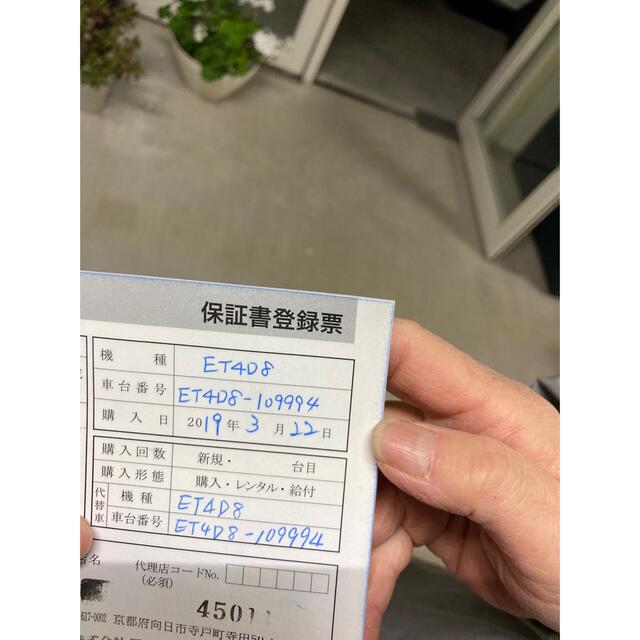 保証書登録票
機種 ET4D8
車台番号 ET4D8-109994
購入日 2019年3月22日
購入回数 新規・ 台目
購入形態 購入・レンタル・給付
代替車 機種 ET4D8
車台番号 ET4D8-109994
名 代理店コードNo.
(必須)
4501
617-0002 京都府向日市寺戸町寺田